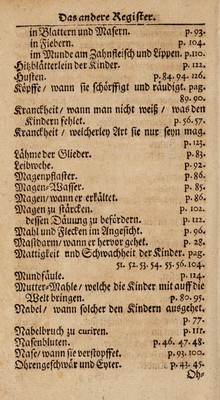 Das andere Register.
in Blattern und Masern. p.93.
in Fiebern. p. 104.
im Munde am Zahnfleisch und Lippen. p.110.
Hitzblätterlein der Kinder. p. 122.
Husten. p. 84. 94. 126.
Köpffe / wann sie schörffigt und räudigt. pag.
89. 90.
Kranckheit / wann man nicht weiß / was den
Kindern fehlet. p. 56. 57.
Kranckheit / welcherley Art sie nur seyn mag.
p. 123.
Lähme der Glieder. p. 83.
Leibwehe. p. 92.
Magenpflaster. p. 86.
Magen-Wasser. p. 85.
Magen / wann er erkältet. p. 86.
Magen zu stärcken. p. 102.
dessen Däuung zu befördern. p. 121.
Mahl und Flecken im Angesicht. p. 96.
Mastdarm / wann er hervor gehet. p. 28.
Mattigkeit und Schwachheit der Kinder. pag.
51. 52. 53. 54. 55. 56. 104.
Mundfäule. p. 124.
Mutter-Mahle / welche die Kinder mit auff die
Welt bringen. p. 80. 95.
Nabel / wann solcher den Kindern ausgehet.
p. 77.
Nabelbruch zu curiren. p. 111.
Nasenbluten. p. 46. 47. 48.
Nase / wann sie verstopffet. p. 93. 100.
Ohrengeschwär und Eyter. p. 43. 45.
Oh-